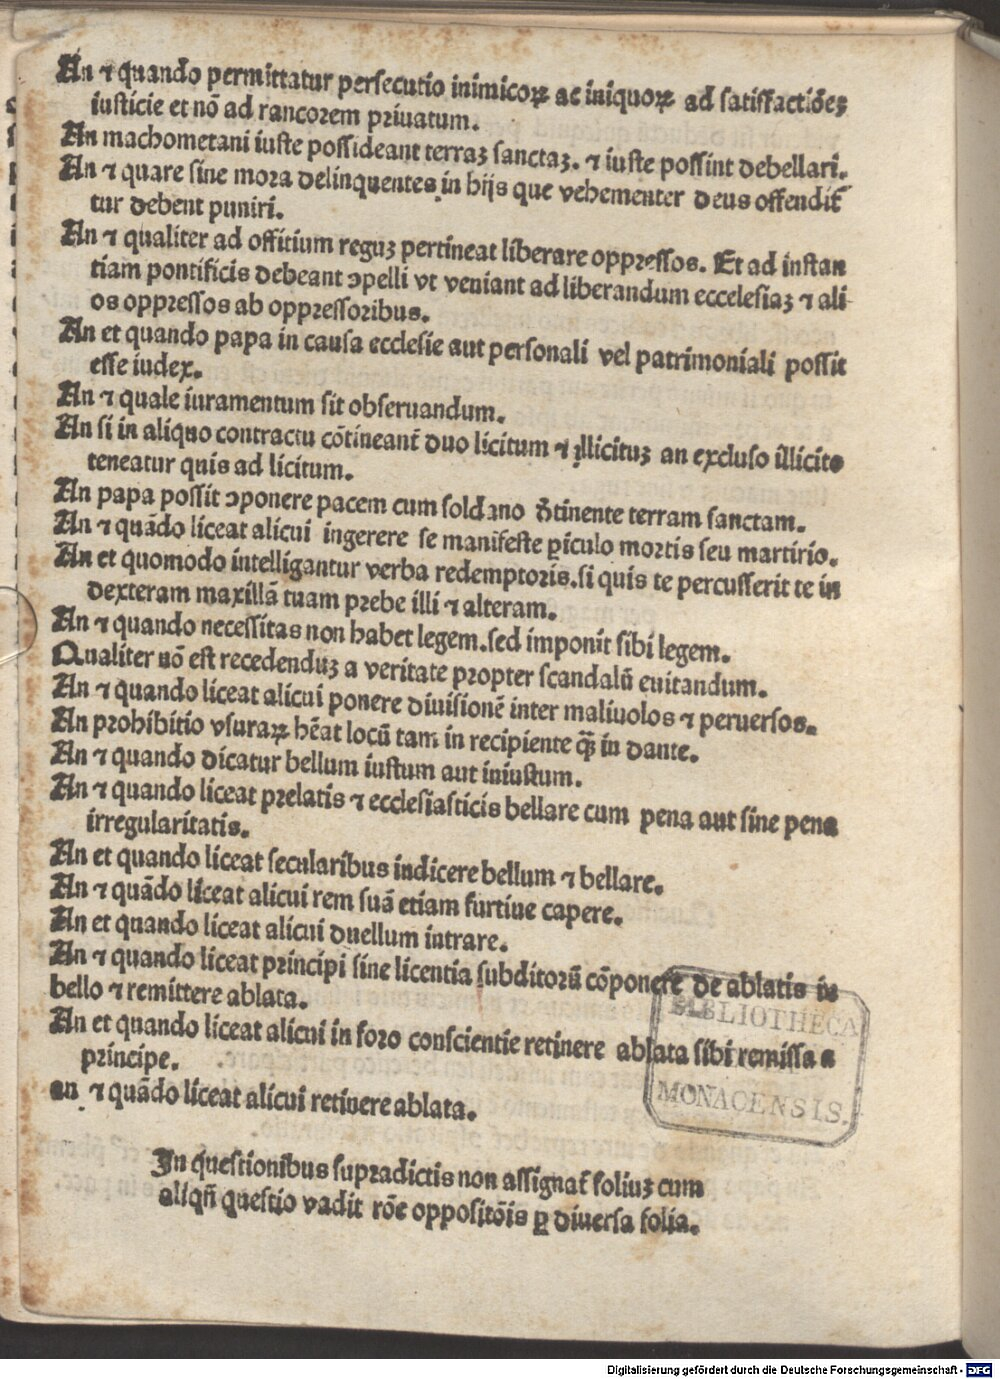 An ⁊ quando permittatur persecutio inimicoꝝ ac iniquoꝝ ad satiffactiōeꝫ
iusticie et nō ad rancorem priuatum.
An machometani iuste possideant terraꝫ sanctaꝫ. ⁊ iuste possint debellari.
An ⁊ quare sine mora delinquentes in hijs que vehementer deus offendit̄
tur debent puniri.
An ⁊ qualiter ad offitium reguꝫ pertineat liberare oppressos. Et ad instan
tiam pontificis debeant ꝯpelli vt veniant ad liberandum eccelesiaꝫ ⁊ ali
os oppressos ab oppressoribus.
An et quando papa in causa ecclesie aut personali vel patrimoniali possit
esse iudex.
An ⁊ quale iuramentum sit obseruandum.
An si in aliquo contractu cōtineant̄ duo licitum ⁊ illicituꝫ an excluso illicito
teneatur quis ad licitum.
An papa possit ꝯponere pacem cum soldano d̄tinente terram sanctam.
An ⁊ quādo liceat alicui ingerere se manifeste ꝑiculo mortis seu martirio.
An et quomodo intelligantur verba redemptoris. si quis te percusserit te in
dexteram maxillā tuam prebe illi ⁊ alteram.
An ⁊ quando necessitas non habet legem. sed imponit sibi legem.
Qualiter nō est recedenduꝫ a veritate propter scandalū euitandum.
An ⁊ quando liceat alicui ponere diuisionē inter maliuolos ⁊ peruersos.
An prohibitio vsuraꝝ hēat locū tam in recipiente q̄ꝫ in dante.
An ⁊ quando dicatur bellum iustum aut iniustum.
An ⁊ quando liceat prelatis ⁊ ecclesiasticis bellare cum pena aut sine pena
irregularitatis.
An et quando liceat secularibus indicere bellum ⁊ bellare.
An ⁊ quādo liceat alicui rem suā etiam furtiue capere.
An et quando liceat alicui duellum intrare.
An ⁊ quando liceat principi sine licentia subditorū cōponere de ablatis in
bello ⁊ remittere ablata.
An et quando liceat alicui in foro conscientie retinere ablata sibi remissa a
principe.
an ⁊ quādo liceat alicui retinere ablata.
In questionibus supradictis non assignat̄ foliuꝫ cum
aliqn̄ questio vadit rōe oppositōis ꝑ diuersa folia.
BIBLIOTHECA
MONACENSIS.
Digitalisierung gefördert durch die Deutsche Forschungsgemeinschaft - DFG